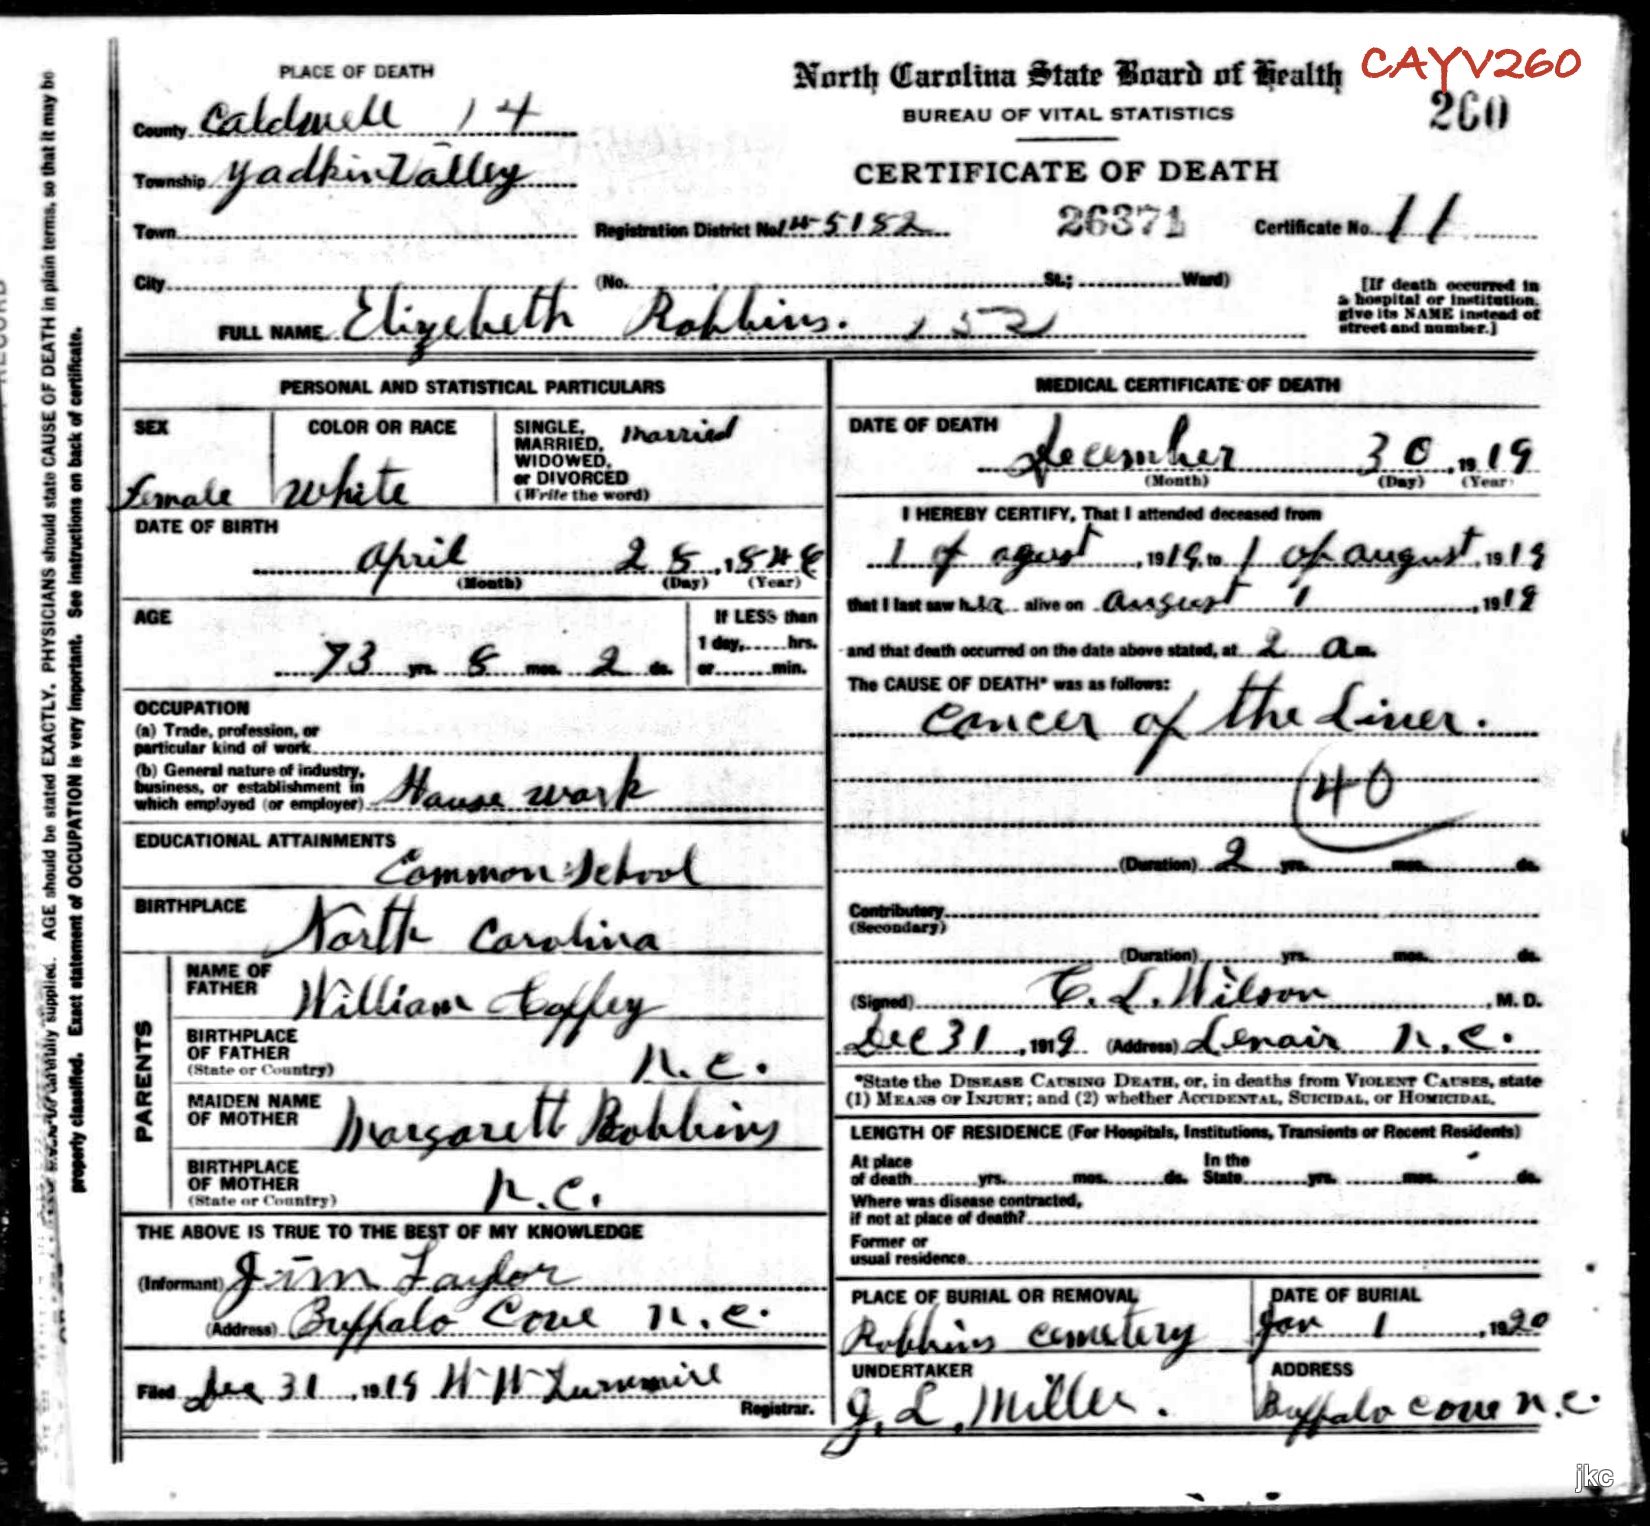 CAYV260
260
North Carolina State Board of Health
BUREAU OF VITAL STATISTICS
CERTIFICATE OF DEATH
PLACE OF DEATH
County Caldwell 14
Township Yadkin Valley
Town
Registration District No. 14-5152 26371 Certificate No. 11
City (No. St.; Ward)
[If death occurred in
a hospital or institution,
give its NAME instead of
street and number.]
FULL NAME Elizebeth Robbins. 152
PERSONAL AND STATISTICAL PARTICULARS
SEX
Female
COLOR OR RACE
White
SINGLE,
MARRIED,
WIDOWED,
or DIVORCED
(Write the word)
Married
DATE OF BIRTH
April 28
(Month) (Day) (Year)
AGE
73 yrs. 8 mos. 2 ds.
If LESS than
1 day, hrs.
or min.
OCCUPATION
(a) Trade, profession, or
particular kind of work
(b) General nature of industry,
business, or establishment in
which employed (or employer) House work
EDUCATIONAL ATTAINMENTS
Common School
BIRTHPLACE
North Carolina
PARENTS
NAME OF
FATHER
William Coffey
BIRTHPLACE
OF FATHER
(State or Country)
N.C.
MAIDEN NAME
OF MOTHER
Margarett Robbins
BIRTHPLACE
OF MOTHER
(State or Country)
N.C.
THE ABOVE IS TRUE TO THE BEST OF MY KNOWLEDGE
(Informant) Jim Taylor
(Address) Buffalo Cove N.C.
Filed Dec 31, 1919 W W
Registrar.
MEDICAL CERTIFICATE OF DEATH
DATE OF DEATH
December 30, 1919
(Month) (Day) (Year)
I HEREBY CERTIFY, That I attended deceased from
1 of agust, 1919, to 1 of august, 1919
that I last saw her alive on august 1, 1919
and that death occurred on the date above stated, at 2 a m.
The CAUSE OF DEATH* was as follows:
Cancer of the Liver.
40
(Duration) 2 yrs. mos. ds.
Contributory
(Secondary)
(Duration) yrs. mos. ds.
(Signed) C. L. Wilson, M. D.
Dec 31, 1919 (Address) Lenoir N.C.
*State the DISEASE CAUSING DEATH, or, in deaths from VIOLENT CAUSES, state
(1) MEANS OF INJURY; and (2) whether ACCIDENTAL, SUICIDAL, or HOMICIDAL.
LENGTH OF RESIDENCE (For Hospitals, Institutions, Transients or Recent Residents)
At place
of death yrs. mos. ds.
In the
State yrs. mos. ds.
Where was disease contracted,
if not at place of death?
Former or
usual residence
PLACE OF BURIAL OR REMOVAL
Robbins cemetery
DATE OF BURIAL
Jan 1, 1920
UNDERTAKER
J. L. Miller.
ADDRESS
Buffalo Cove N.C.
AGE should be stated EXACTLY. PHYSICIANS should state CAUSE OF DEATH in plain terms, so that it may be
properly classified. Exact statement of OCCUPATION is very important. See instructions on back of certificate.
jkc